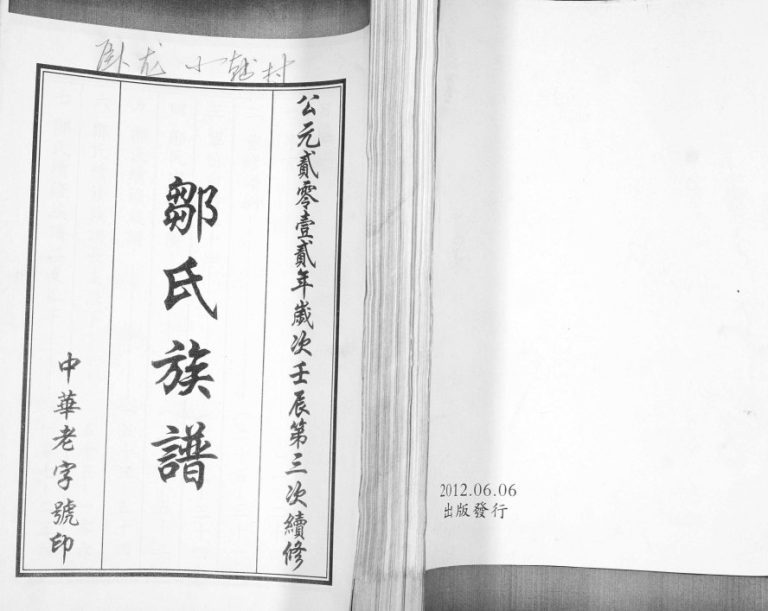 卧龙 小钱村
公元貳零壹貳年歲次壬辰第三次續修
鄒氏族譜
中華老字號印
2012.06.06
出版發行